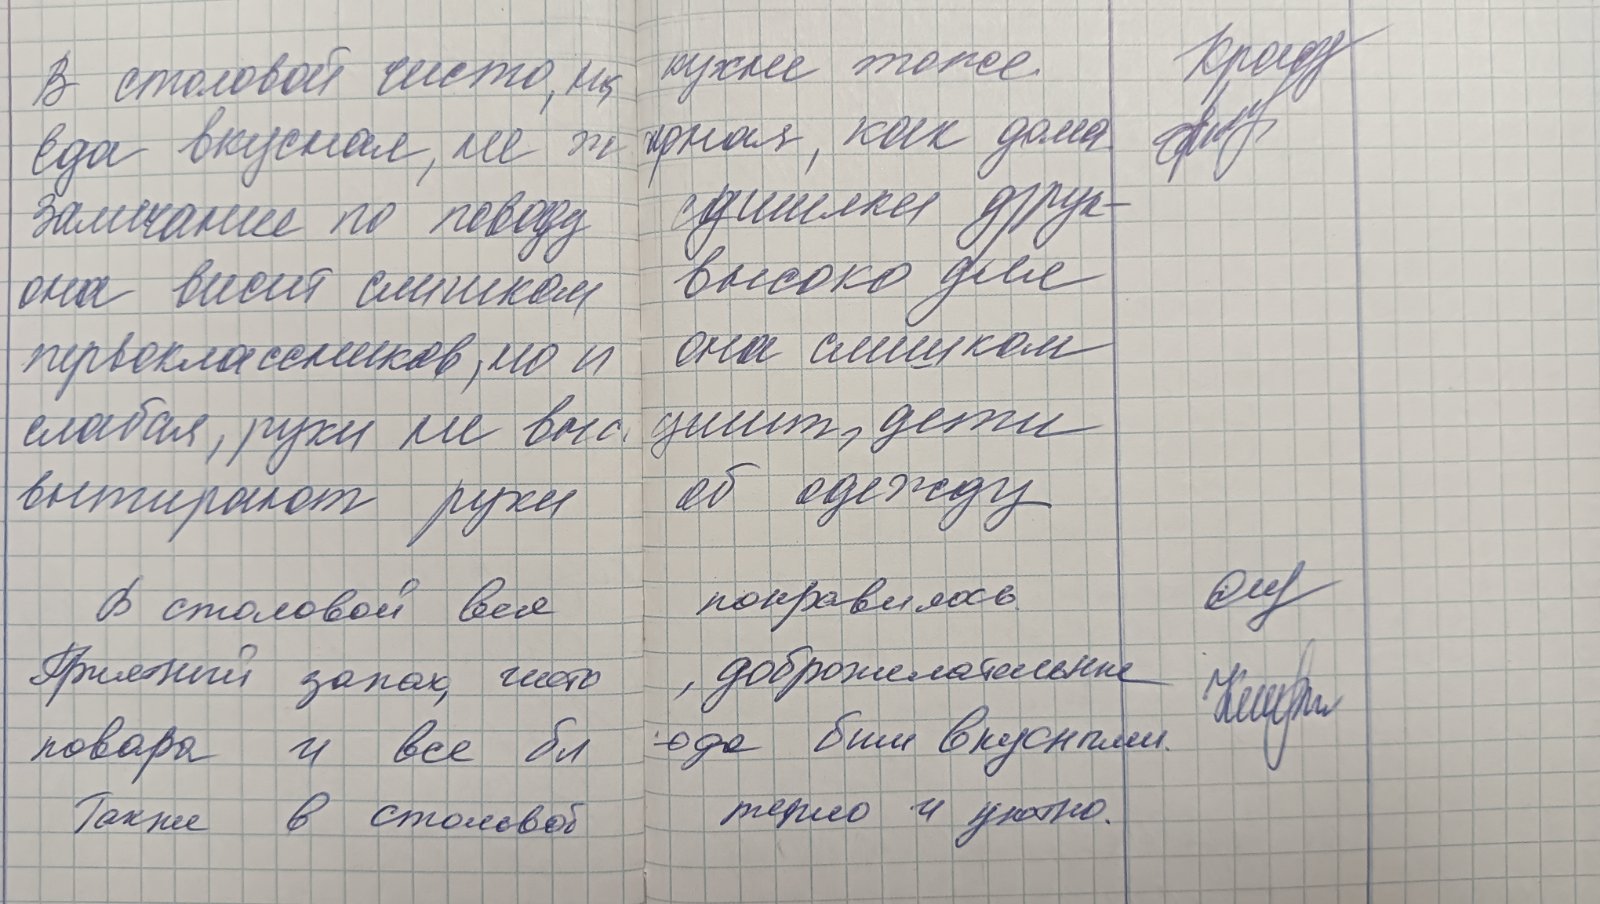 В столовой чисто, на кухне тоже.
еда вкусная, не жирная, как дома.
Замечание по поводу сушилки для рук-
она висит слишком высоко для
первоклассников, но и она слишком
слабая, руки не высушит, дети
вытирают руки об одежду
В столовой все понравилось
Приятный запах, чисто, доброжелательные
повара и все блюда были вкусными.
Также в столовой тепло и уютно.